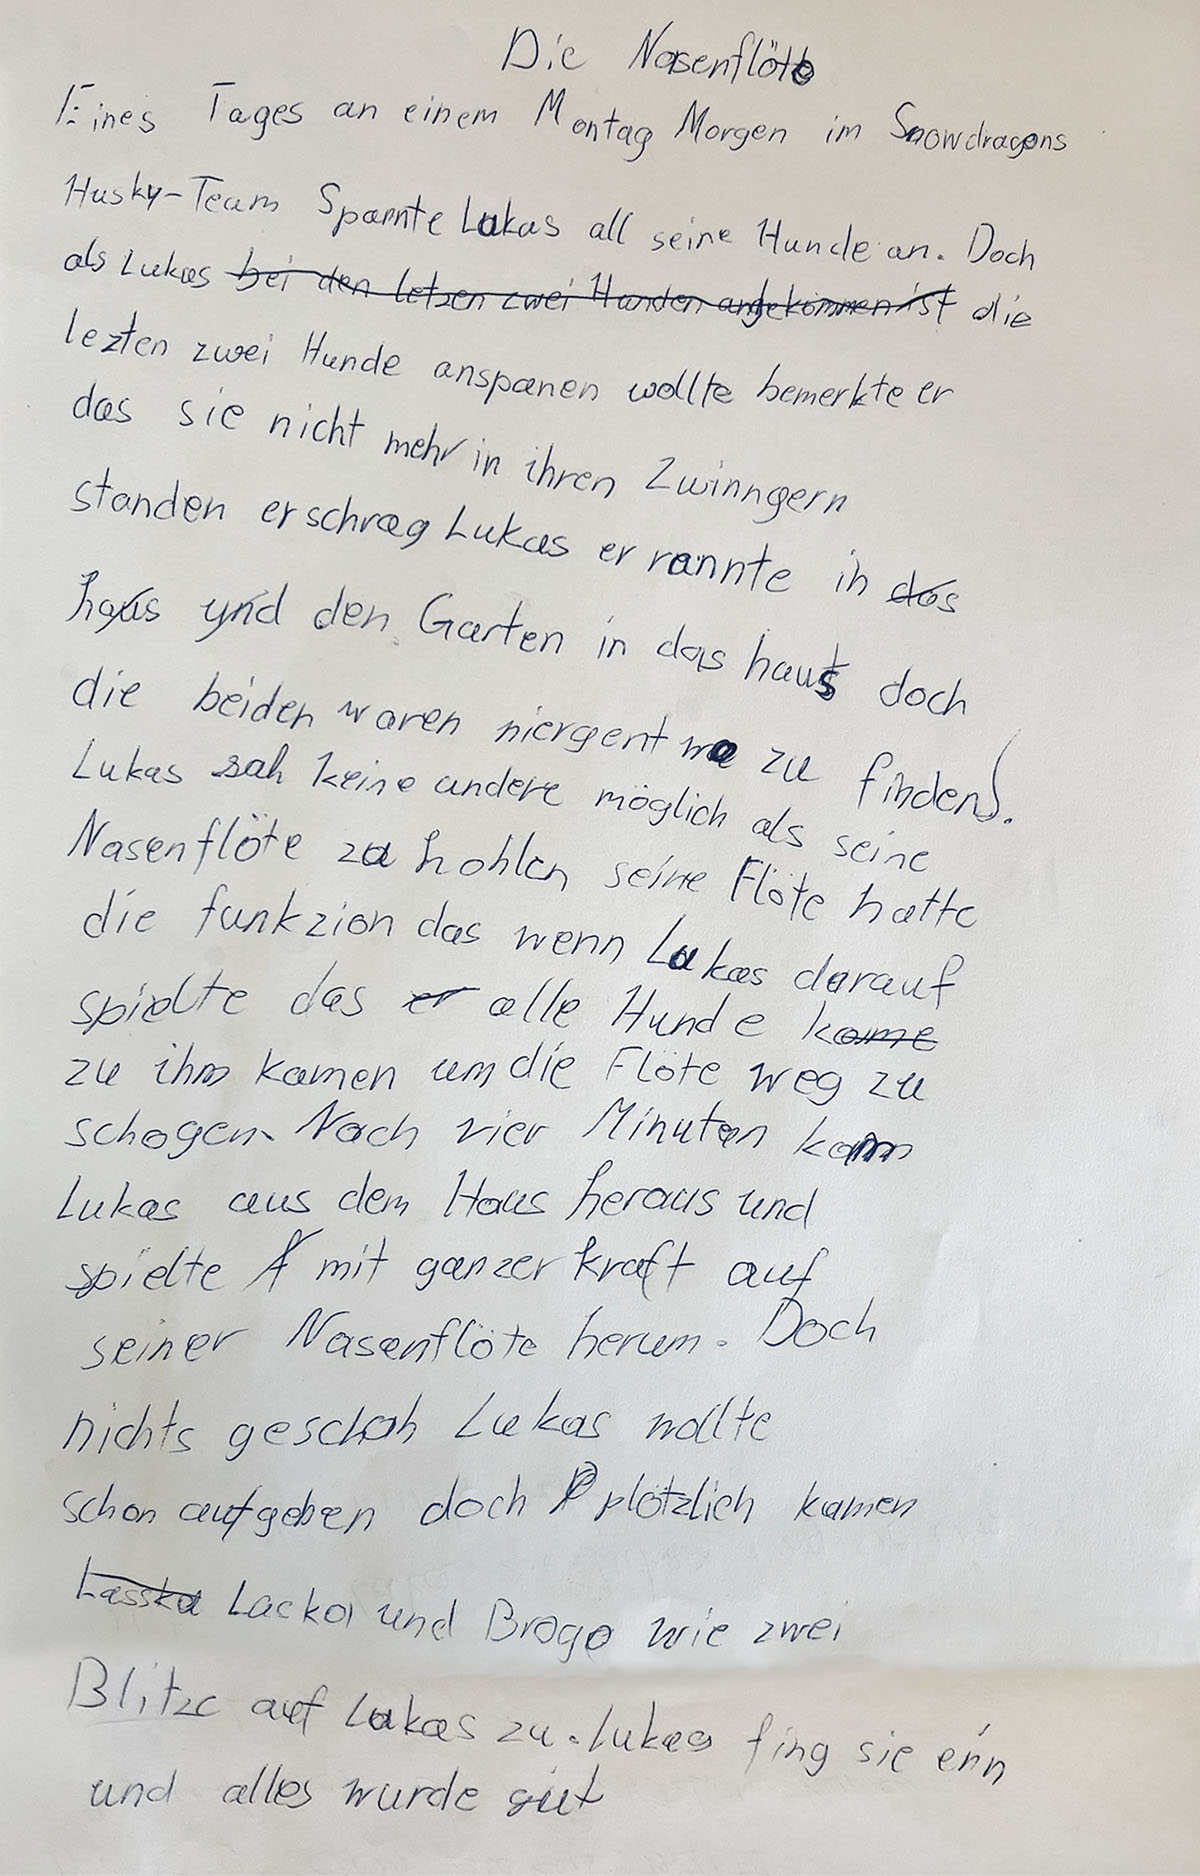 Die Nasenflöte
Eines Tages an einem Montag Morgen im Snowdragons
Husky-Team Spannte Lukas all seine Hunde an. Doch
als Lukas bei den letzen zwei Hunden angekommen ist die
lezten zwei Hunde anspanen wollte bemerkte er
das sie nicht mehr in ihren Zwinngern
standen erschrag Lukas er rannte in das
haus und den Garten in das haus doch
die beiden waren niergent wo zu finden.
Lukas sah keine andere möglich als seine
Nasenflöte zu hohlen seine Flöte hatte
die funkzion das wenn Lukas darauf
spielte das er alle Hunde kame
zu ihm kamen um die Flöte weg zu
schogen. Nach vier Minuten kam
Lukas aus dem Haus heraus und
spielte mit ganzer kraft auf
seiner Nasenflöte herum. Doch
nichts geschah Lukas wollte
schon aufgeben doch plötzlich kamen
Lasska Lacka und Brogo wie zwei
Blitze auf Lukas zu. Lukas fing sie ein
und alles wurde gut